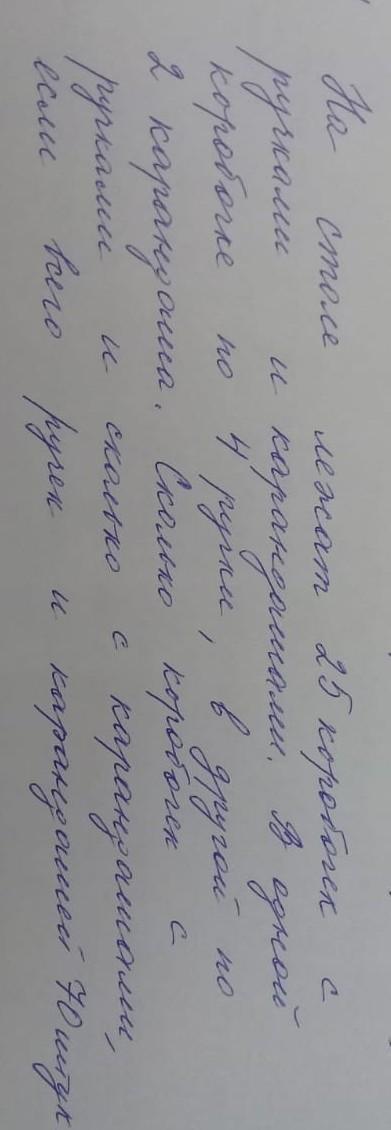 На столе лежат 25 коробок с
ручками и карандашами. В одной
коробке по 4 ручки, в другой по
2 карандаша. Сколько коробок с
ручками и сколько с карандашами,
если всего ручек и карандашей 70 штук